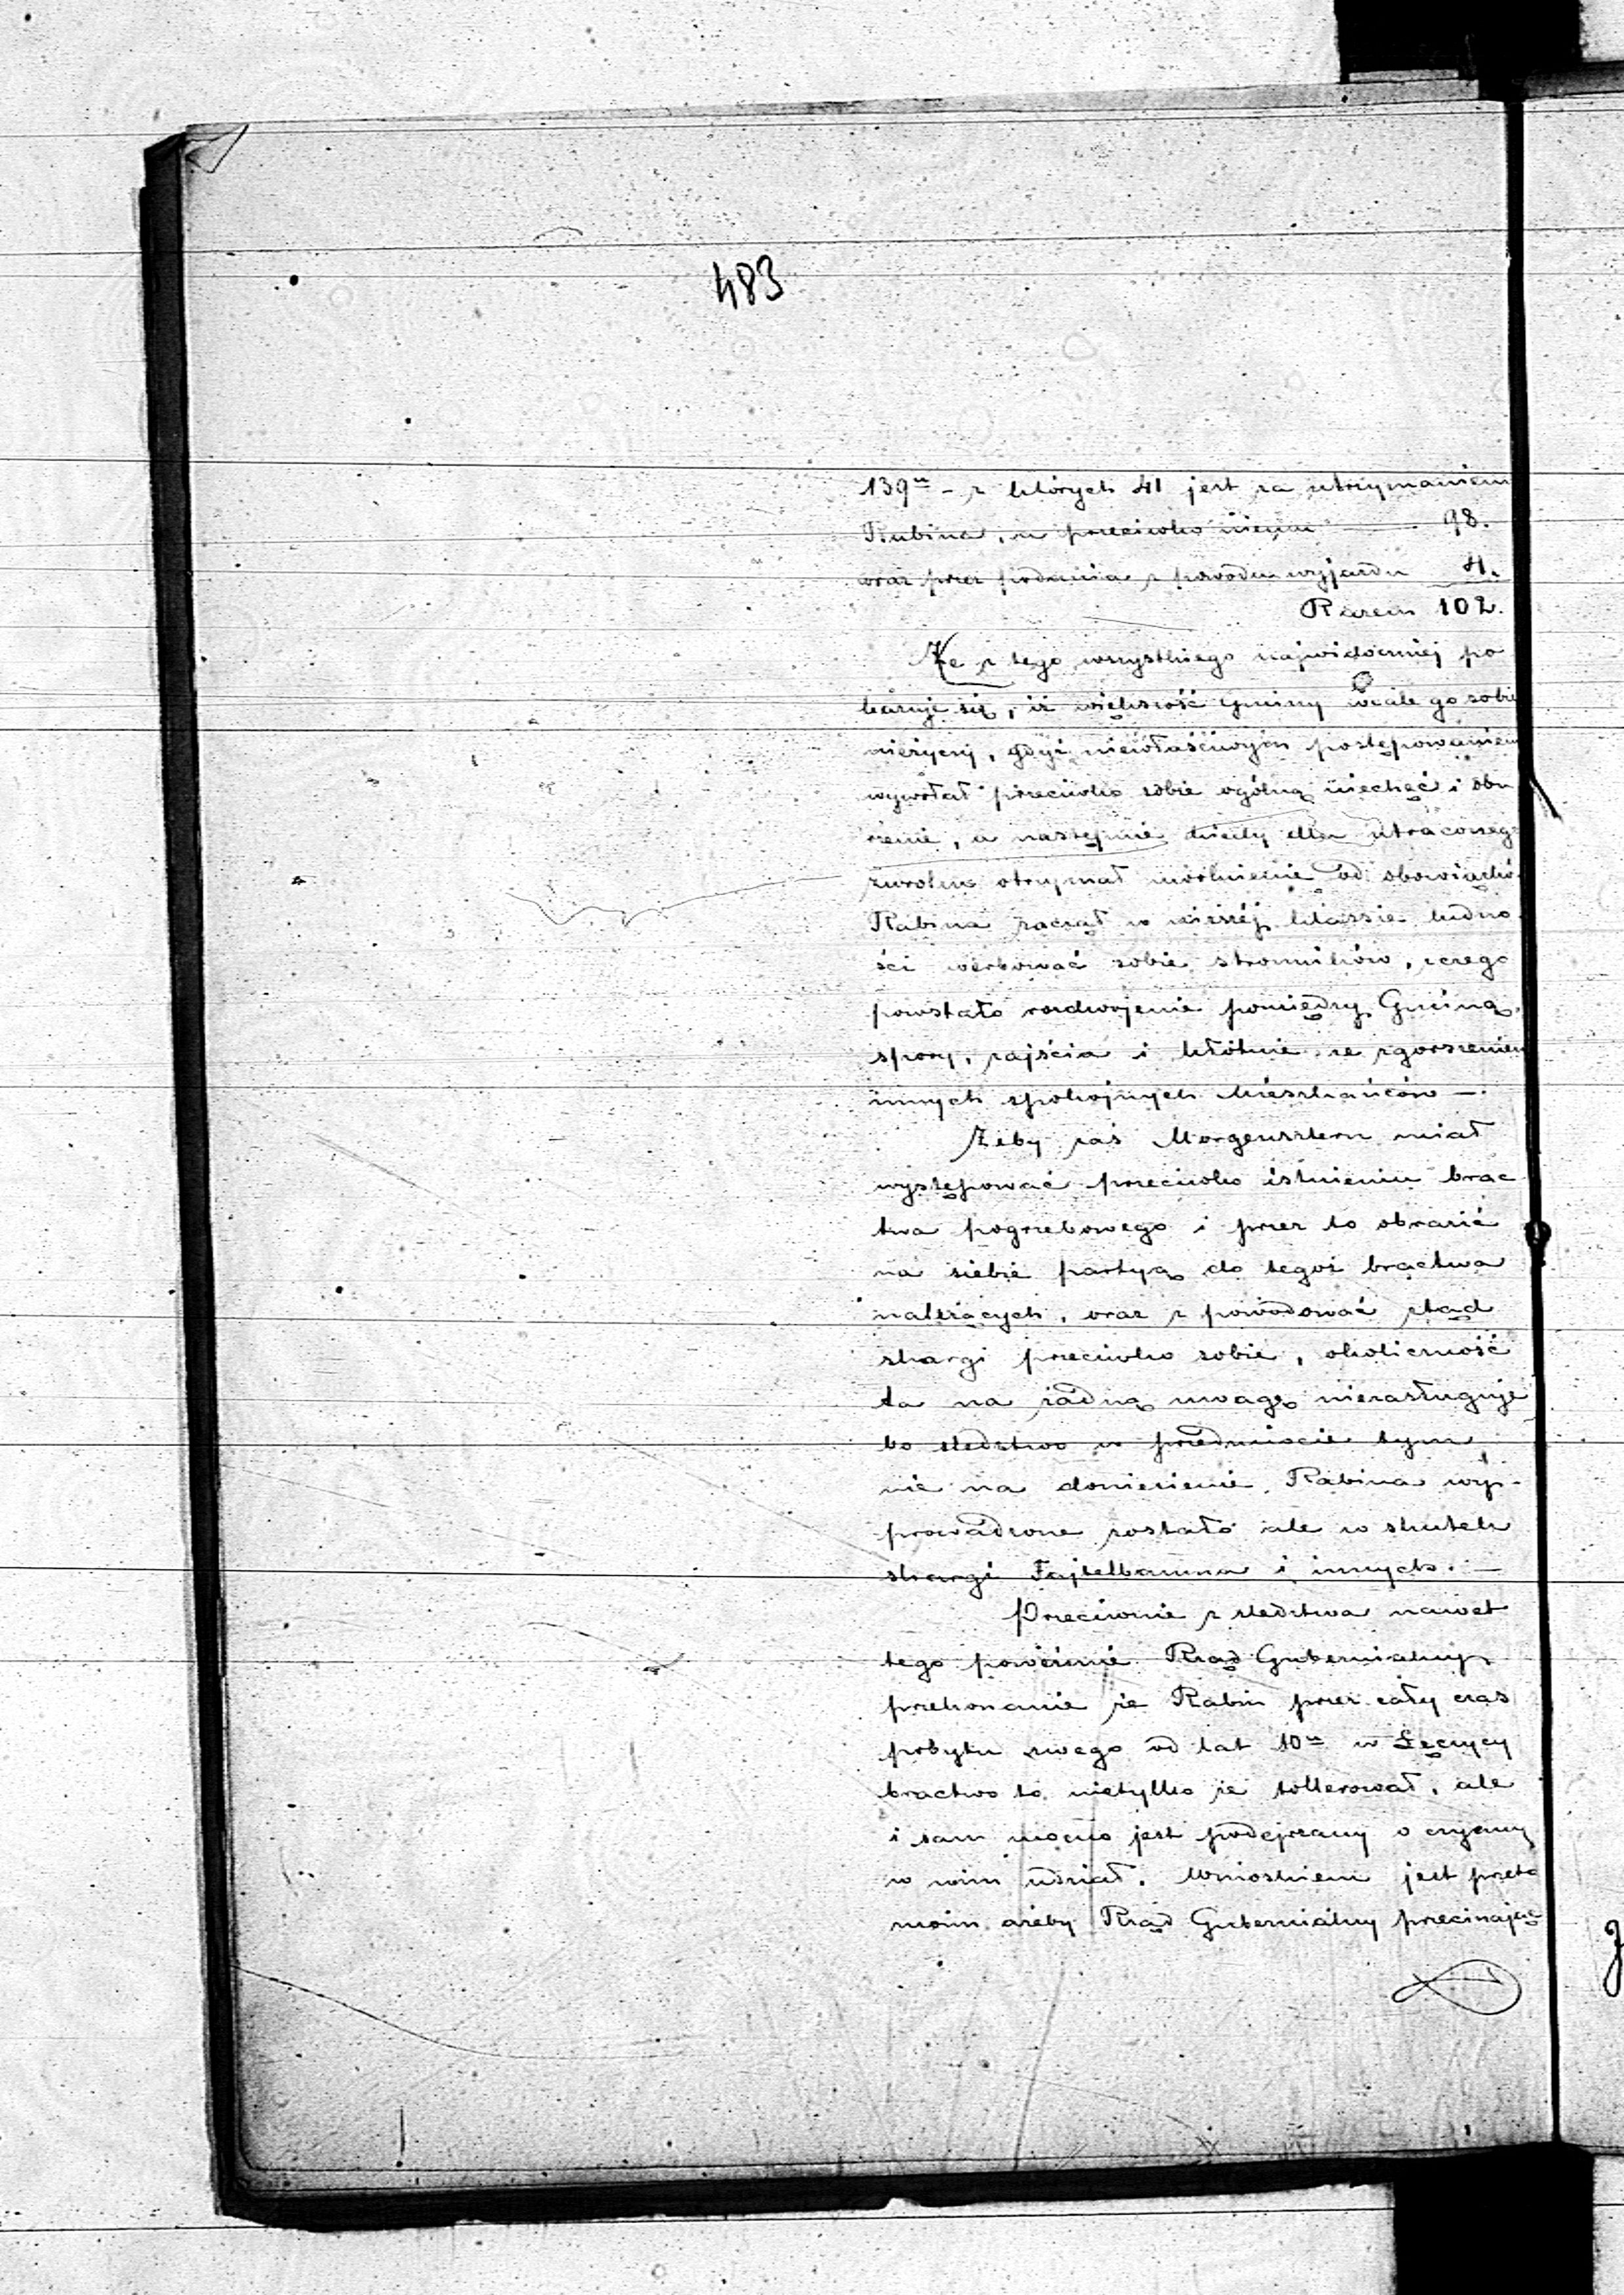 483
139u – z których 41 jest za utrzymaniem
Rabina, a przeciwko niemu — 98.
oraz przez podania z powodu wyjazdu 4.
Razem 102.
Że z tego wszystkiego najwidoczniej po
kazuje się, iż większość Gminy wcale go sobie
nieżyczy, gdyż niewłaściwym postępowaniem
wywołał przeciwko sobie ogólną niechęć i obu
rzenie, a następnie kiedy dla utraconego
wzroku otrzymał uwolnienie od obowiązków
Rabina zaczął w niższéj klassie ludno
ści werbować sobie stronników, z czego
powstało rozdwojenie pomiędzy Gminą,
spory, zajścia i kłótnie ze zgorszeniem
innych spokojnych Mieszkańców —.
Żeby zaś Morgensztern miał
występować przeciwko istnieniu brac
twa pogrzebowego i przez to obrazić
na siebie partyą do tegoż bractwa
należących, oraz spowodować ztąd
skargi przeciwko sobie, okoliczność
ta na żadną uwagę niezasługuje
bo śledztwo w przedmiocie tym
nie na doniesienie Rabina wy-
prowadzone zostało ale w skutek
skargi Fajtelbauma i innych. —
Przeciwnie z śledztwa nawet
tego poweźmie Rząd Gubernialny
przekonanie że Rabin przez cały czas
pobytu swego od lat 10u w Łęczycy
bractwo to nietylko że tollerował, ale
i sam mocno jest podejrzany o czynny
w nim udział. Wnioskiem jest przeto
moim ażeby Rząd Gubernialny przecinając